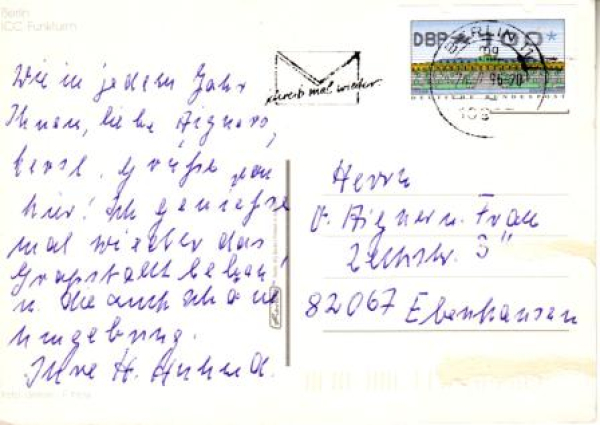 Berlin
ICC Funkturm
DBP
DEUTSCHE BUNDESPOST
BERLIN
Schreib mal wieder.
Wie in jedem Jahr
Ihnen, liebe Aigners,
herzl. Grüße von
hier! Ich genieße
mal wieder das
Großstadtleben
u. die auch schöne
Umgebung.
Ihre H.
Herrn
O. Aigner u. Frau
82067 Ebenhausen